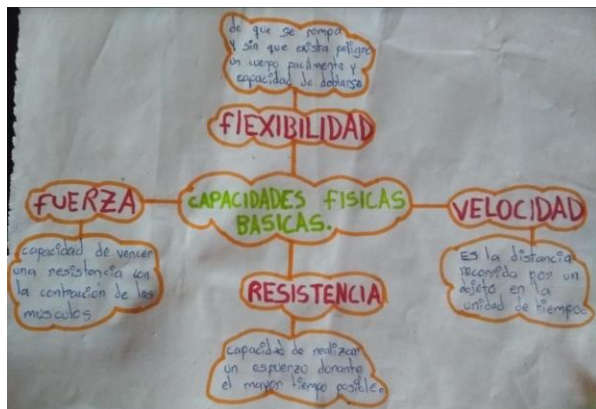 de que se rompa
y sin que exista peligro
un cuerpo facilmente y
capacidad de doblarse
FlEXIBILIDAD
FUERZA
CAPACIDADES FISICAS
BASICAS.
VELOCIDAD
capacidad de vencer
una resistencia con
la contracion de los
musculos
Es la distancia
recorrida por un
objeto en la
unidad de tiempo
RESISTENCIA
capacidad de realizar
un espuerzo durante
el mayor tiempo posible.